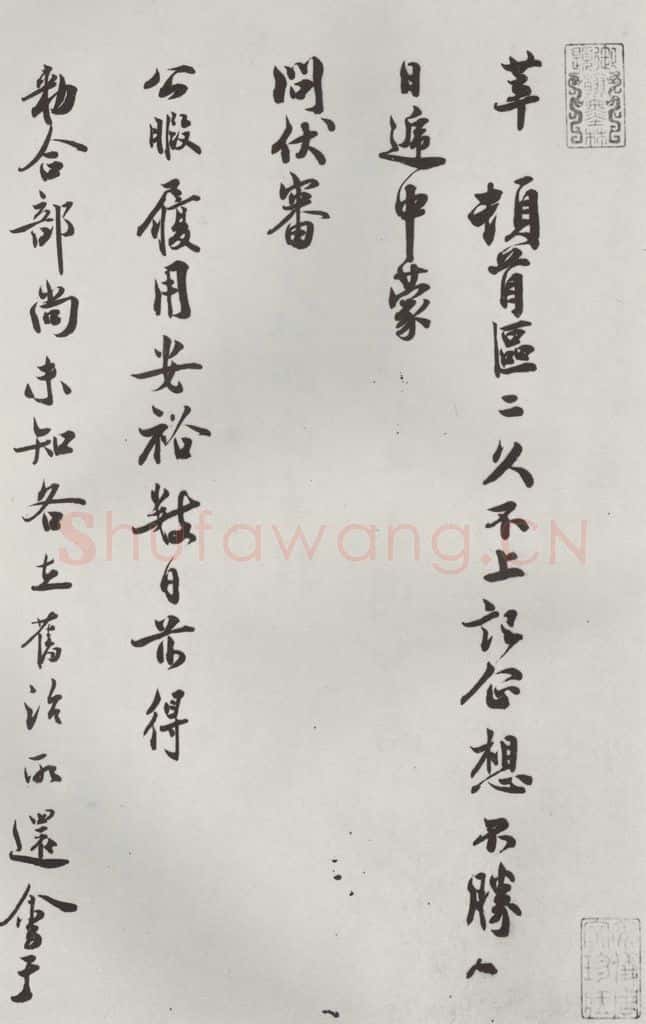 莘 頓首區二久不上記企想不勝
日遞中蒙
問伏審
公暇履用安裕數日前得
勑合部尚未知各立舊治所還會于
Shufawang.CN